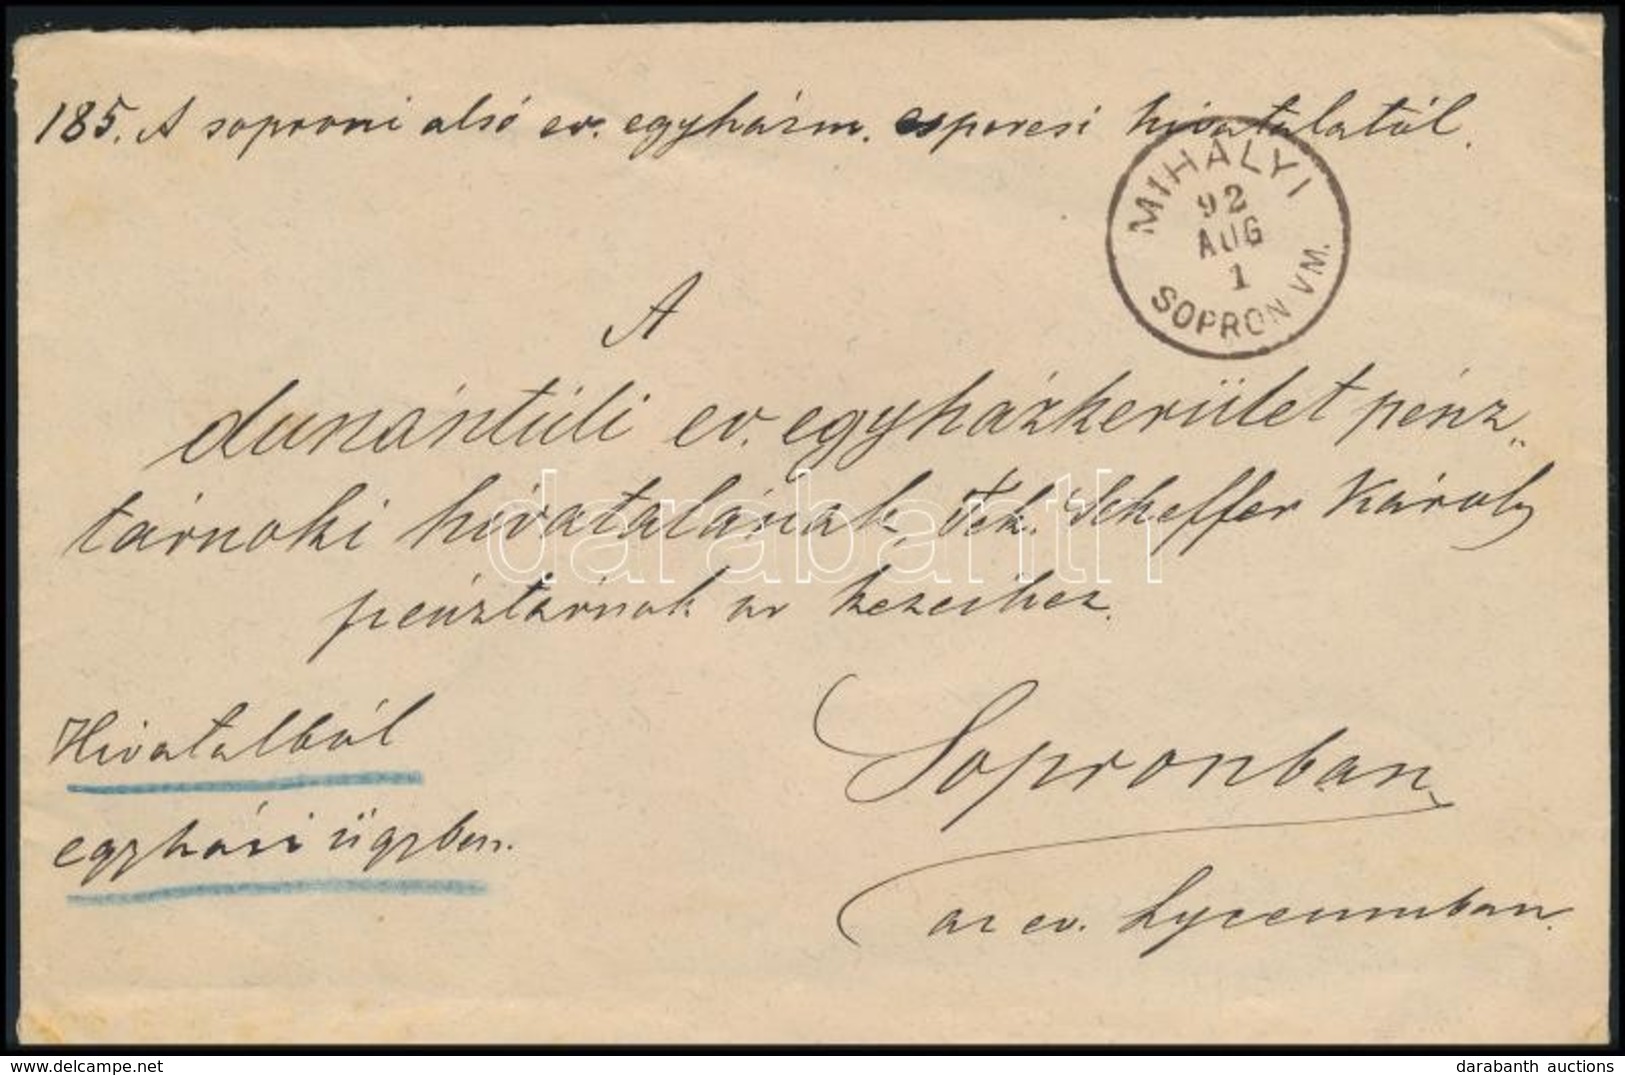 185. A soproni alsó ev. egyházm. esperesi hivatalától.
MIHÁLYI
92
AUG
1
SOPRON VM.
A
dunántúli ev. egyházkerület pénz„
tárnoki hivatalának, Tek. Scheffer Károly
pénztárnok úr kezeihez.
Hivatalból
egyházi ügyben.
Sopronban
az ev. Lyceumban.
darabanth
darabanth auctions